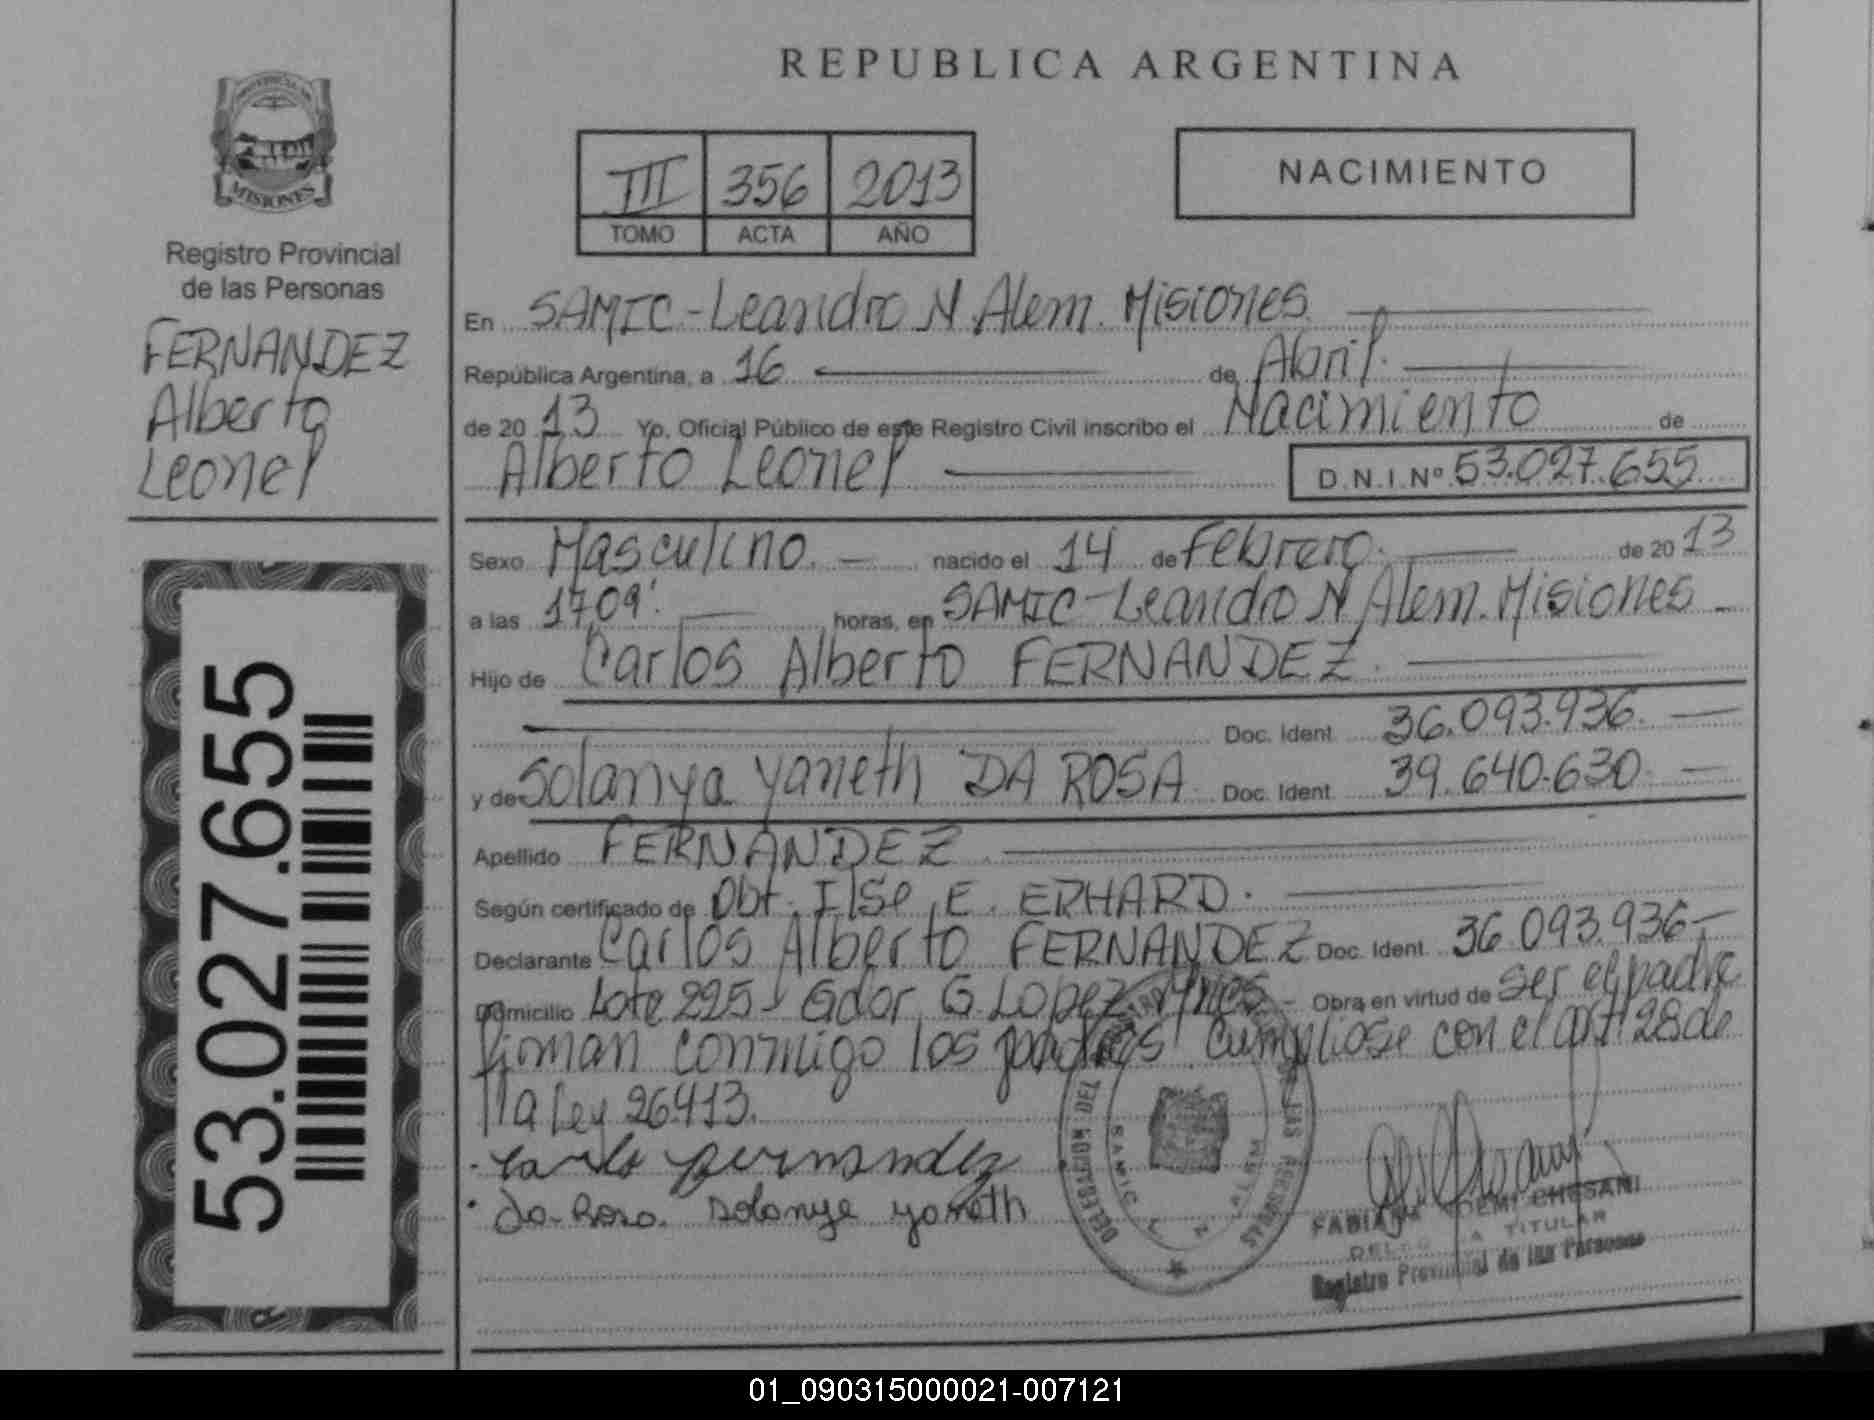 PROVINCIA DE
MISIONES
Registro Provincial
de las Personas
FERNANDEZ
Alberto
Leonel
53.027.655
REPUBLICA ARGENTINA
III 356 2013
TOMO ACTA AÑO
NACIMIENTO
En SAMIC-Leandro N. Alem. Misiones
República Argentina, a 16 de Abril.
de 20 13 Yo, Oficial Público de este Registro Civil inscribo el Nacimiento de
Alberto Leonel D.N.I.Nº 53.027.655
Sexo Masculino. nacido el 14 de Febrero. de 20 13
a las 17,09'. horas, en SAMIC-Leandro N Alem. Misiones
Hijo de Carlos Alberto FERNANDEZ.
Doc. Ident. 36.093.936.
y de Solanya Yaneth DA ROSA. Doc. Ident. 39.640.630.
Apellido FERNANDEZ.
Según certificado de Obt. Ilse E. ERHARD.
Declarante Carlos Alberto FERNANDEZ Doc. Ident. 36.093.936
Domicilio Lote 225- Gdor. G. Lopez Mnes Obra en virtud de ser el padre
firman conmigo los padres. Cumpliose con el art 28 de
la Ley 26413.
Carlo fernandez
Da Rosa Solanye yaneth
DELEGACION DEL REGISTRO DE LAS PERSONAS
SAMIC L N ALEM
FABIANA NOEMI CHESANI
DELEGADA TITULAR
Registro Provincial de las Personas
01_090315000021-007121